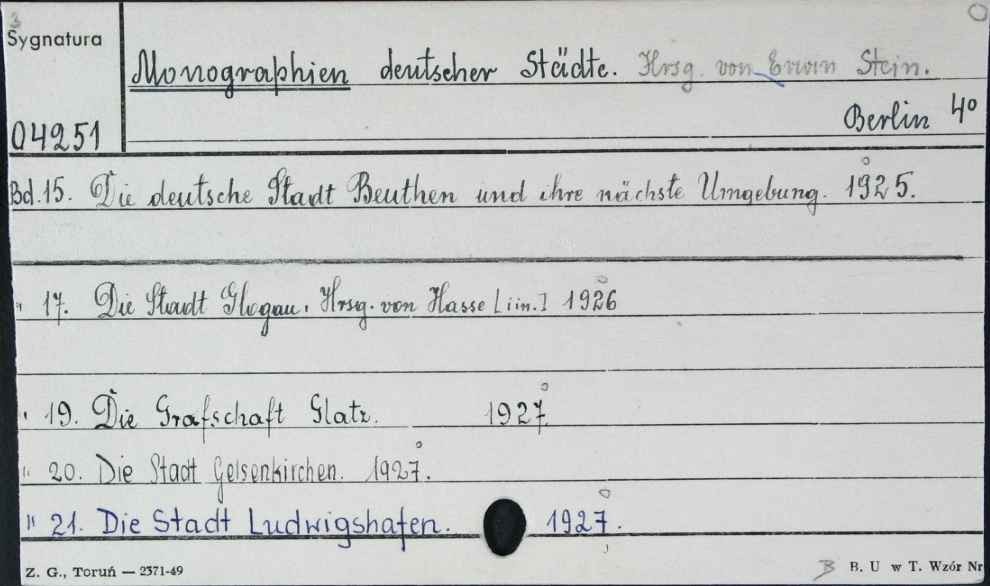 3
Sygnatura
Monographien deutscher Städte. Hrsg. von Erwin Stein.
04251
Berlin 4º
Bd. 15. Die deutsche Stadt Beuthen und ihre nächste Umgebung. 1925.
" 17. Die Stadt Glogau. Hrsg. von Hasse [i in.] 1926
" 19. Die Grafschaft Glatz. 1927.
" 20. Die Stadt Gelsenkirchen. 1927.
" 21. Die Stadt Ludwigshafen. 1927.
Z. G., Toruń — 2371-49
B B. U w T. Wzór Nr